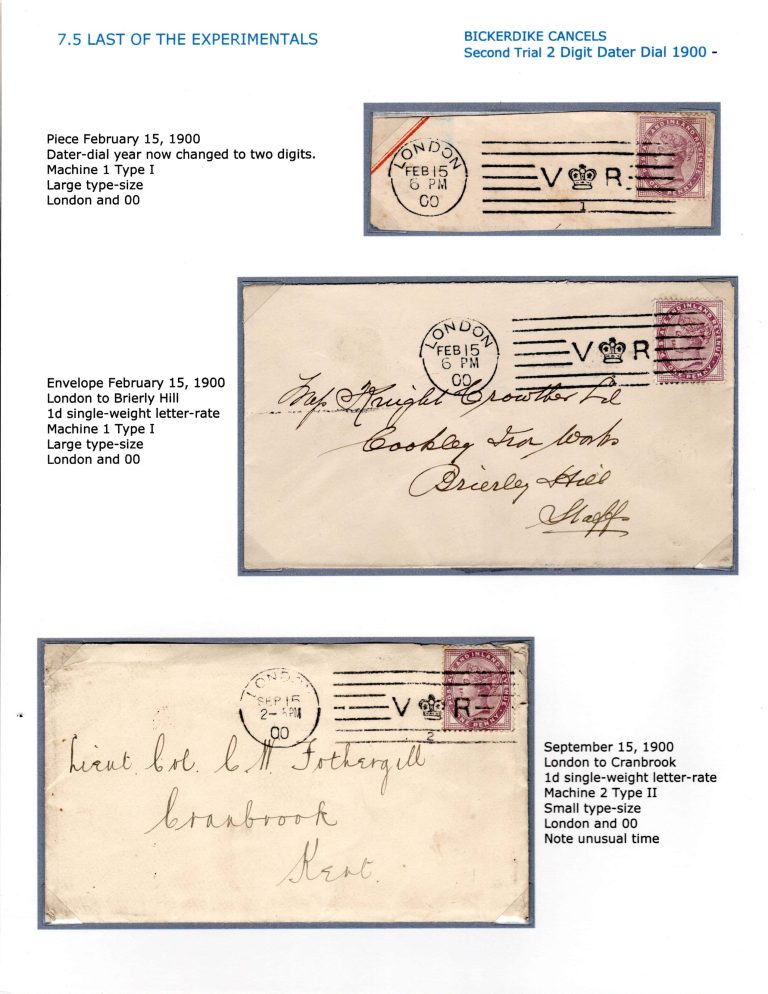 7.5 LAST OF THE EXPERIMENTALS
BICKERDIKE CANCELS
Second Trial 2 Digit Dater Dial 1900 -
Piece February 15, 1900
Dater-dial year now changed to two digits.
Machine 1 Type I
Large type-size
London and 00
LONDON
FEB 15
6 PM
00
V R
1
Envelope February 15, 1900
London to Brierly Hill
1d single-weight letter-rate
Machine 1 Type I
Large type-size
London and 00
LONDON
FEB 15
6 PM
00
V R
Knight Crowther Ld
Cookley Iron Works
Brierley Hill
Staffs
LONDON
SEP 15
2- PM
00
V R
2
Lieut. Col. C. H. Fothergill
Cranbrook
Kent.
September 15, 1900
London to Cranbrook
1d single-weight letter-rate
Machine 2 Type II
Small type-size
London and 00
Note unusual time